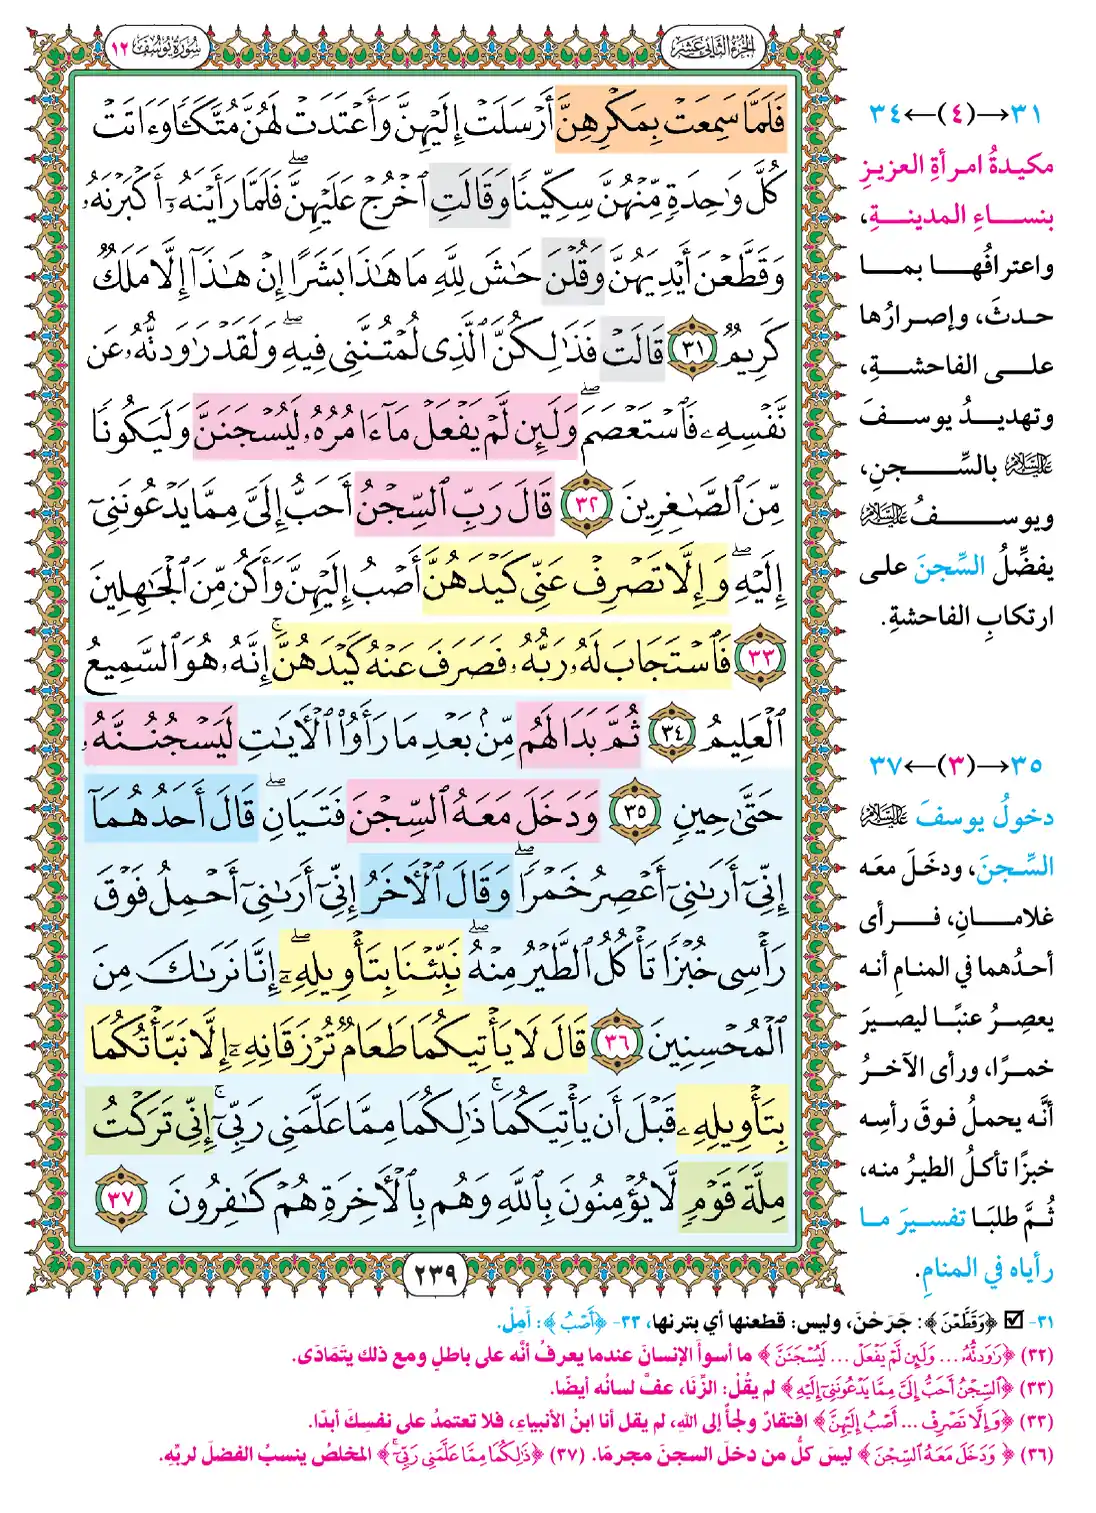 سُورَةُ يُوسُفَ ١٢
الجُزْءُ الثَّانِي عَشَرَ
فَلَمَّا سَمِعَتْ بِمَكْرِهِنَّ أَرْسَلَتْ إِلَيْهِنَّ وَأَعْتَدَتْ لَهُنَّ مُتَّكَـًٔا وَءَاتَتْ
كُلَّ وَٰحِدَةٍ مِّنْهُنَّ سِكِّينًا وَقَالَتِ ٱخْرُجْ عَلَيْهِنَّۖ فَلَمَّا رَأَيْنَهُۥٓ أَكْبَرْنَهُۥ
وَقَطَّعْنَ أَيْدِيَهُنَّ وَقُلْنَ حَٰشَ لِلَّهِ مَا هَٰذَا بَشَرًا إِنْ هَٰذَآ إِلَّا مَلَكٌ
كَرِيمٌ ٣١ قَالَتْ فَذَٰلِكُنَّ ٱلَّذِى لُمْتُنَّنِى فِيهِۖ وَلَقَدْ رَٰوَدتُّهُۥ عَن
نَّفْسِهِۦ فَٱسْتَعْصَمَۖ وَلَئِن لَّمْ يَفْعَلْ مَآ ءَامُرُهُۥ لَيُسْجَنَنَّ وَلَيَكُونًا
مِّنَ ٱلصَّٰغِرِينَ ٣٢ قَالَ رَبِّ ٱلسِّجْنُ أَحَبُّ إِلَىَّ مِمَّا يَدْعُونَنِىٓ
إِلَيْهِۖ وَإِلَّا تَصْرِفْ عَنِّى كَيْدَهُنَّ أَصْبُ إِلَيْهِنَّ وَأَكُن مِّنَ ٱلْجَٰهِلِينَ
٣٣ فَٱسْتَجَابَ لَهُۥ رَبُّهُۥ فَصَرَفَ عَنْهُ كَيْدَهُنَّۚ إِنَّهُۥ هُوَ ٱلسَّمِيعُ
ٱلْعَلِيمُ ٣٤ ثُمَّ بَدَا لَهُم مِّنۢ بَعْدِ مَا رَأَوُا۟ ٱلْـَٔايَٰتِ لَيَسْجُنُنَّهُۥ
حَتَّىٰ حِينٍ ٣٥ وَدَخَلَ مَعَهُ ٱلسِّجْنَ فَتَيَانِۖ قَالَ أَحَدُهُمَآ
إِنِّىٓ أَرَىٰنِىٓ أَعْصِرُ خَمْرًاۖ وَقَالَ ٱلْـَٔاخَرُ إِنِّىٓ أَرَىٰنِىٓ أَحْمِلُ فَوْقَ
رَأْسِى خُبْزًا تَأْكُلُ ٱلطَّيْرُ مِنْهُۖ نَبِّئْنَا بِتَأْوِيلِهِۦٓۖ إِنَّا نَرَىٰكَ مِنَ
ٱلْمُحْسِنِينَ ٣٦ قَالَ لَا يَأْتِيكُمَا طَعَامٌ تُرْزَقَانِهِۦٓ إِلَّا نَبَّأْتُكُمَا
بِتَأْوِيلِهِۦ قَبْلَ أَن يَأْتِيَكُمَاۚ ذَٰلِكُمَا مِمَّا عَلَّمَنِى رَبِّىٓۚ إِنِّى تَرَكْتُ
مِلَّةَ قَوْمٍ لَّا يُؤْمِنُونَ بِٱللَّهِ وَهُم بِٱلْـَٔاخِرَةِ هُمْ كَٰفِرُونَ ٣٧
٢٣٩
٣١→(٤)←٣٤
مكيدةُ امرأةِ العزيزِ
بنساءِ المدينةِ،
واعترافُها بما
حدثَ، وإصرارُها
على الفاحشةِ،
وتهديدُ يوسفَ
عَلَيْهِ السَّلَامُ بالسِّجنِ،
ويوسفُ عَلَيْهِ السَّلَامُ
يفضِّلُ السِّجنَ على
ارتكابِ الفاحشةِ.
٣٥→(٣)←٣٧
دخولُ يوسفَ عَلَيْهِ السَّلَامُ
السِّجنَ، ودخَلَ معَه
غلامانِ، فرأى
أحدُهما في المنامِ أنه
يعصِرُ عنبًا ليصيرَ
خمرًا، ورأى الآخرُ
أنَّه يحملُ فوقَ رأسِه
خبزًا تأكلُ الطيرُ منه،
ثُمَّ طلبَا تفسيرَ ما
رأياه في المنامِ.
٣١- ☑ ﴿وَقَطَّعْنَ﴾: جَرَحْنَ، وليس: قطعنها أي بترنها، ٣٣- ﴿أَصْبُ﴾: أَمِلْ.
(٣٢) ﴿رَٰوَدتُّهُۥ ... وَلَئِن لَّمْ يَفْعَلْ ... لَيُسْجَنَنَّ﴾ ما أسوأَ الإنسانَ عندما يعرفُ أنَّه على باطلٍ ومع ذلك يتَمَادَى.
(٣٣) ﴿ٱلسِّجْنُ أَحَبُّ إِلَىَّ مِمَّا يَدْعُونَنِىٓ إِلَيْهِ﴾ لم يقُلْ: الزِّنَا، عفَّ لسانُه أيضًا.
(٣٣) ﴿وَإِلَّا تَصْرِفْ ... أَصْبُ إِلَيْهِنَّ﴾ افتقارٌ ولجأٌ إلى اللهِ، لم يقل أنا ابنُ الأنبياءِ، فلا تعتمدْ على نفسِكَ أبدًا.
(٣٦) ﴿وَدَخَلَ مَعَهُ ٱلسِّجْنَ﴾ ليسَ كلُّ من دخلَ السجنَ مجرمًا. (٣٧) ﴿ذَٰلِكُمَا مِمَّا عَلَّمَنِى رَبِّىٓۚ﴾ المخلصُ ينسبُ الفضلَ لربِّه.